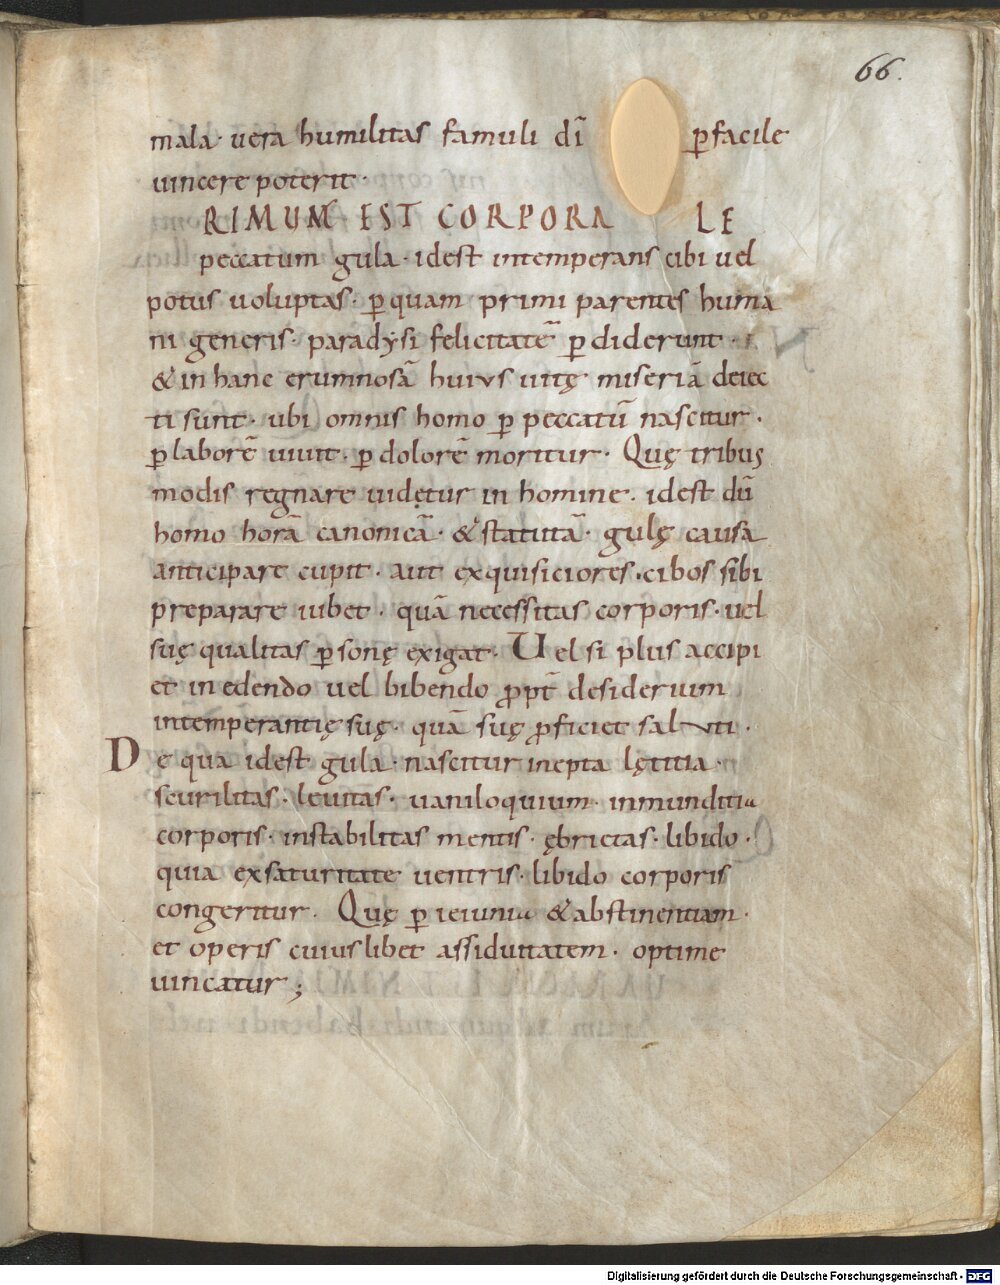 66.
mala · uera humilitas famuli dī ꝑfacile
uincere poterit ·
RIMUM EST CORPORA LE
peccatum gula · idest intemperans cibi uel
potus uoluptas · ꝑ quam primi parentes huma
ni generis · paradysi felicitatē ꝑdiderunt ·
& in hanc erumnosā huius uitę miseriā deiec
ti sunt · ubi omnis homo ꝑ peccatū nascitur ·
ꝑ laborē uiuit · ꝑ dolorē moritur · Quę tribus
modis regnare uidętur in homine · idest dū
homo horā canonicā · & statutā · gulę causa
anticipare cupit · aut exquisiciores · cibos sibi
preparare iubet · quā necessitas corporis · uel
suę qualitas ꝑsonę exigat · Uel si plus accipi
et in edendo uel bibendo ꝓpt̄ desiderium
intemperantię suę · quā suę ꝓficiet saluti ·
De qua idest gula · nascitur inepta lętitia ·
scurilitas · leuitas · uaniloquium · inmunditia
corporis · instabilitas mentis · ębrietas · libido ·
quia exsaturitate uentris · libido corporis
congeritur · Quę ꝑ ieiunia & abstinentiam ·
et operis cuiuslibet assiduitatem · optime
uincatur ;
Digitalisierung gefördert durch die Deutsche Forschungsgemeinschaft - DFG